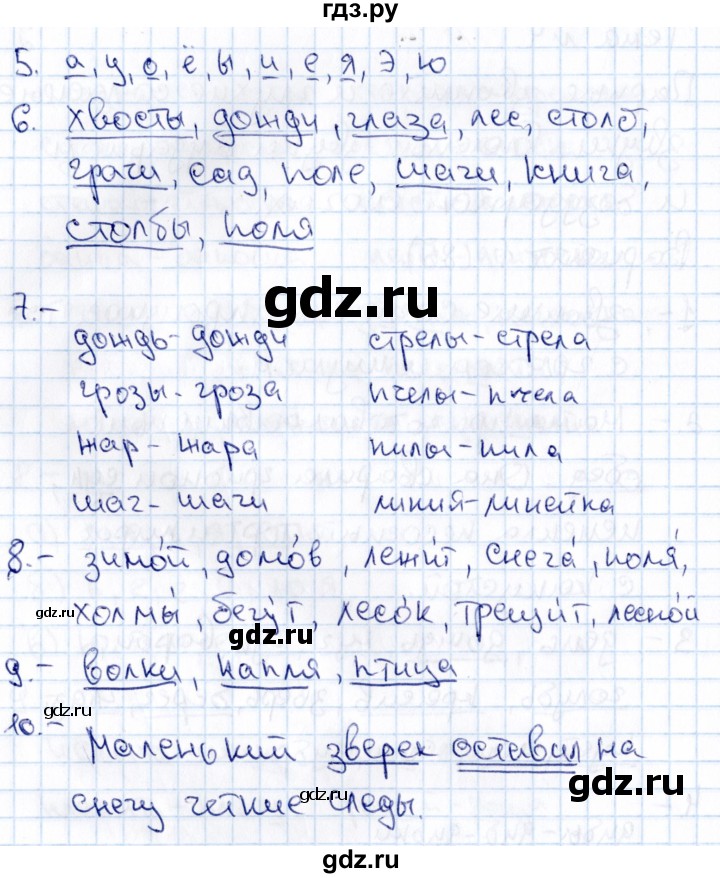 гдз.ру
5. а, у, о, ё, ы, и, е, я, э, ю
6. хвосты, дожди, глаза, лес, столб,
грачи, сад, поле, шаги, книга,
столбы, поля
gdz.ru
7. -
дождь - дожди стрелы - стрела
грозы - гроза пчелы - пчела
жар - жара пилы - пила
шаг - шаги линия - линейка
8. - зимо́й, домо́в, лежи́т, снега́, поля́,
gdz.ru
холмы́, бегу́т, лесо́к, трещи́т, лесно́й
gdz.ru
9. - волки, капля, птица
gdz.ru
10. - Маленький зверек оставил на
снегу четкие следы.
gdz.ru
gdz.ru